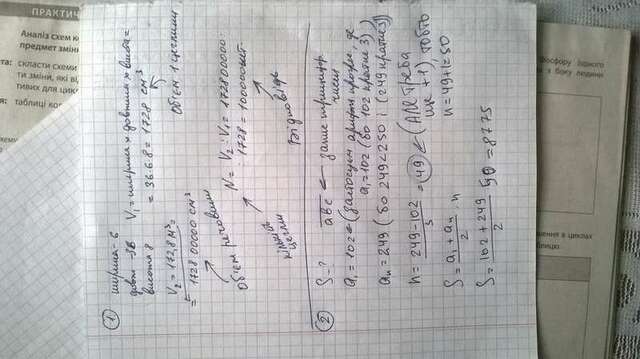 ПРАКТИЧ
Аналіз схем к
предмет зміни
та: скласти схеми
ти зміни, які ві
тивих для цикл
таблиці ко
фосфору (одного
з боку людини
шення в циклах
блицю
① ширина - 6
довж - 36
висота 8
V₁ = ширина × довжина × висота =
= 36·6·8 = 1728 см³
Об'єм 1 цеглини
V₂ = 172,8 м³ =
= 172800000 см³
Об'єм речовини
N = V₂ : V₁ = 172800000 :
: 1728 = 100000 шт
кількість цеглин
Відповідь
② S - ? abc ← задане трицифр число
a₁ = 102 ← (застосуєм арифм прогрес, де
a₁ = 102 (бо 102 кратне 3)
aₙ = 249 (бо 249 < 250 і (249 кратне 3))
n = (249 - 102)/3 = 49 ← (Але треба
ще + 1) тобто
n = 49 + 1 = 50
S = (a₁ + aₙ)/2 · n
S = (102 + 249)/2 · 50 = 8775